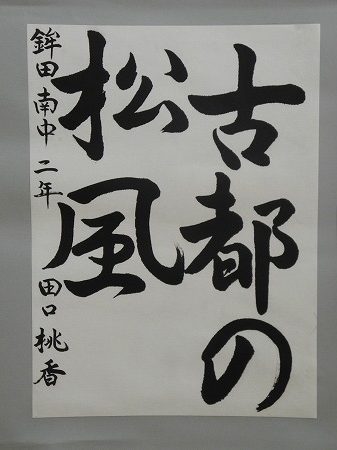 古都の
松風
鉾田南中 二年 田口桃香